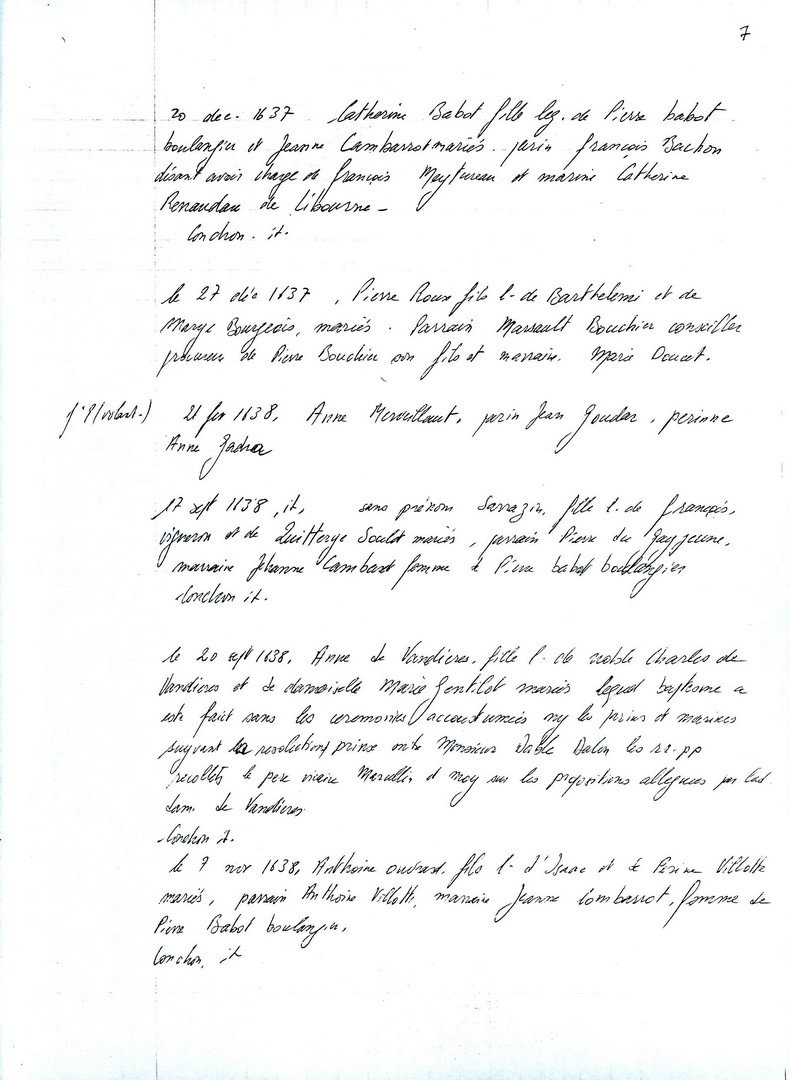 7
20 dec. 1637 Catherine Babot fille leg. de Pierre babot
boulangier et Jeanne Cambarrot mariés. parin françois Bachon
disant avoir charge de françois Meytureau et marine Catherine
Renaudau de Libourne -
Conchon. it.
le 27 déc 1637, Pierre Roux fils l. de Barthelemi et de
Marye Bourgeois, mariés. Parrain Massault Bouchier conseiller
procureur de Pierre Bouchier son fils et marraine. Marie Doucet.
(volant.) 21 fev 1638, Anne Merveillaut, parin Jean Goudar, perinne
Anne
17 sept 1638, it, sans prénom Sarrazin, fille l. de françois,
vigneron et de Quitterye Soulet mariés, parrain Pierre du Gay jeune,
marraine Jehanne Cambarot femme de Pierre babot boulangier
Conchon it.
le 20 sept 1638, Anne de Vandieres, fille l. de noble Charles de
Vandieres et de damoiselle Marie Gentilot mariés lequel baptesme a
este fait sans les ceremonies accoustumées ny les parins et marines
suyvant la resolution prinse entre Monsieur Dalon les rr. pp
recollets le pere vicaire Marcellin et moy sur les propositions alleguées par lad.
dam. de Vandieres.
Conchon it.
le 7 nov 1638, Anthoine ouvrard, fils l. d'Isaac et de Perine Villotte
mariés, parrain Anthoine Villotte, marraine Jeanne Combarrot, femme de
Pierre Babot boulangier,
Conchon, it